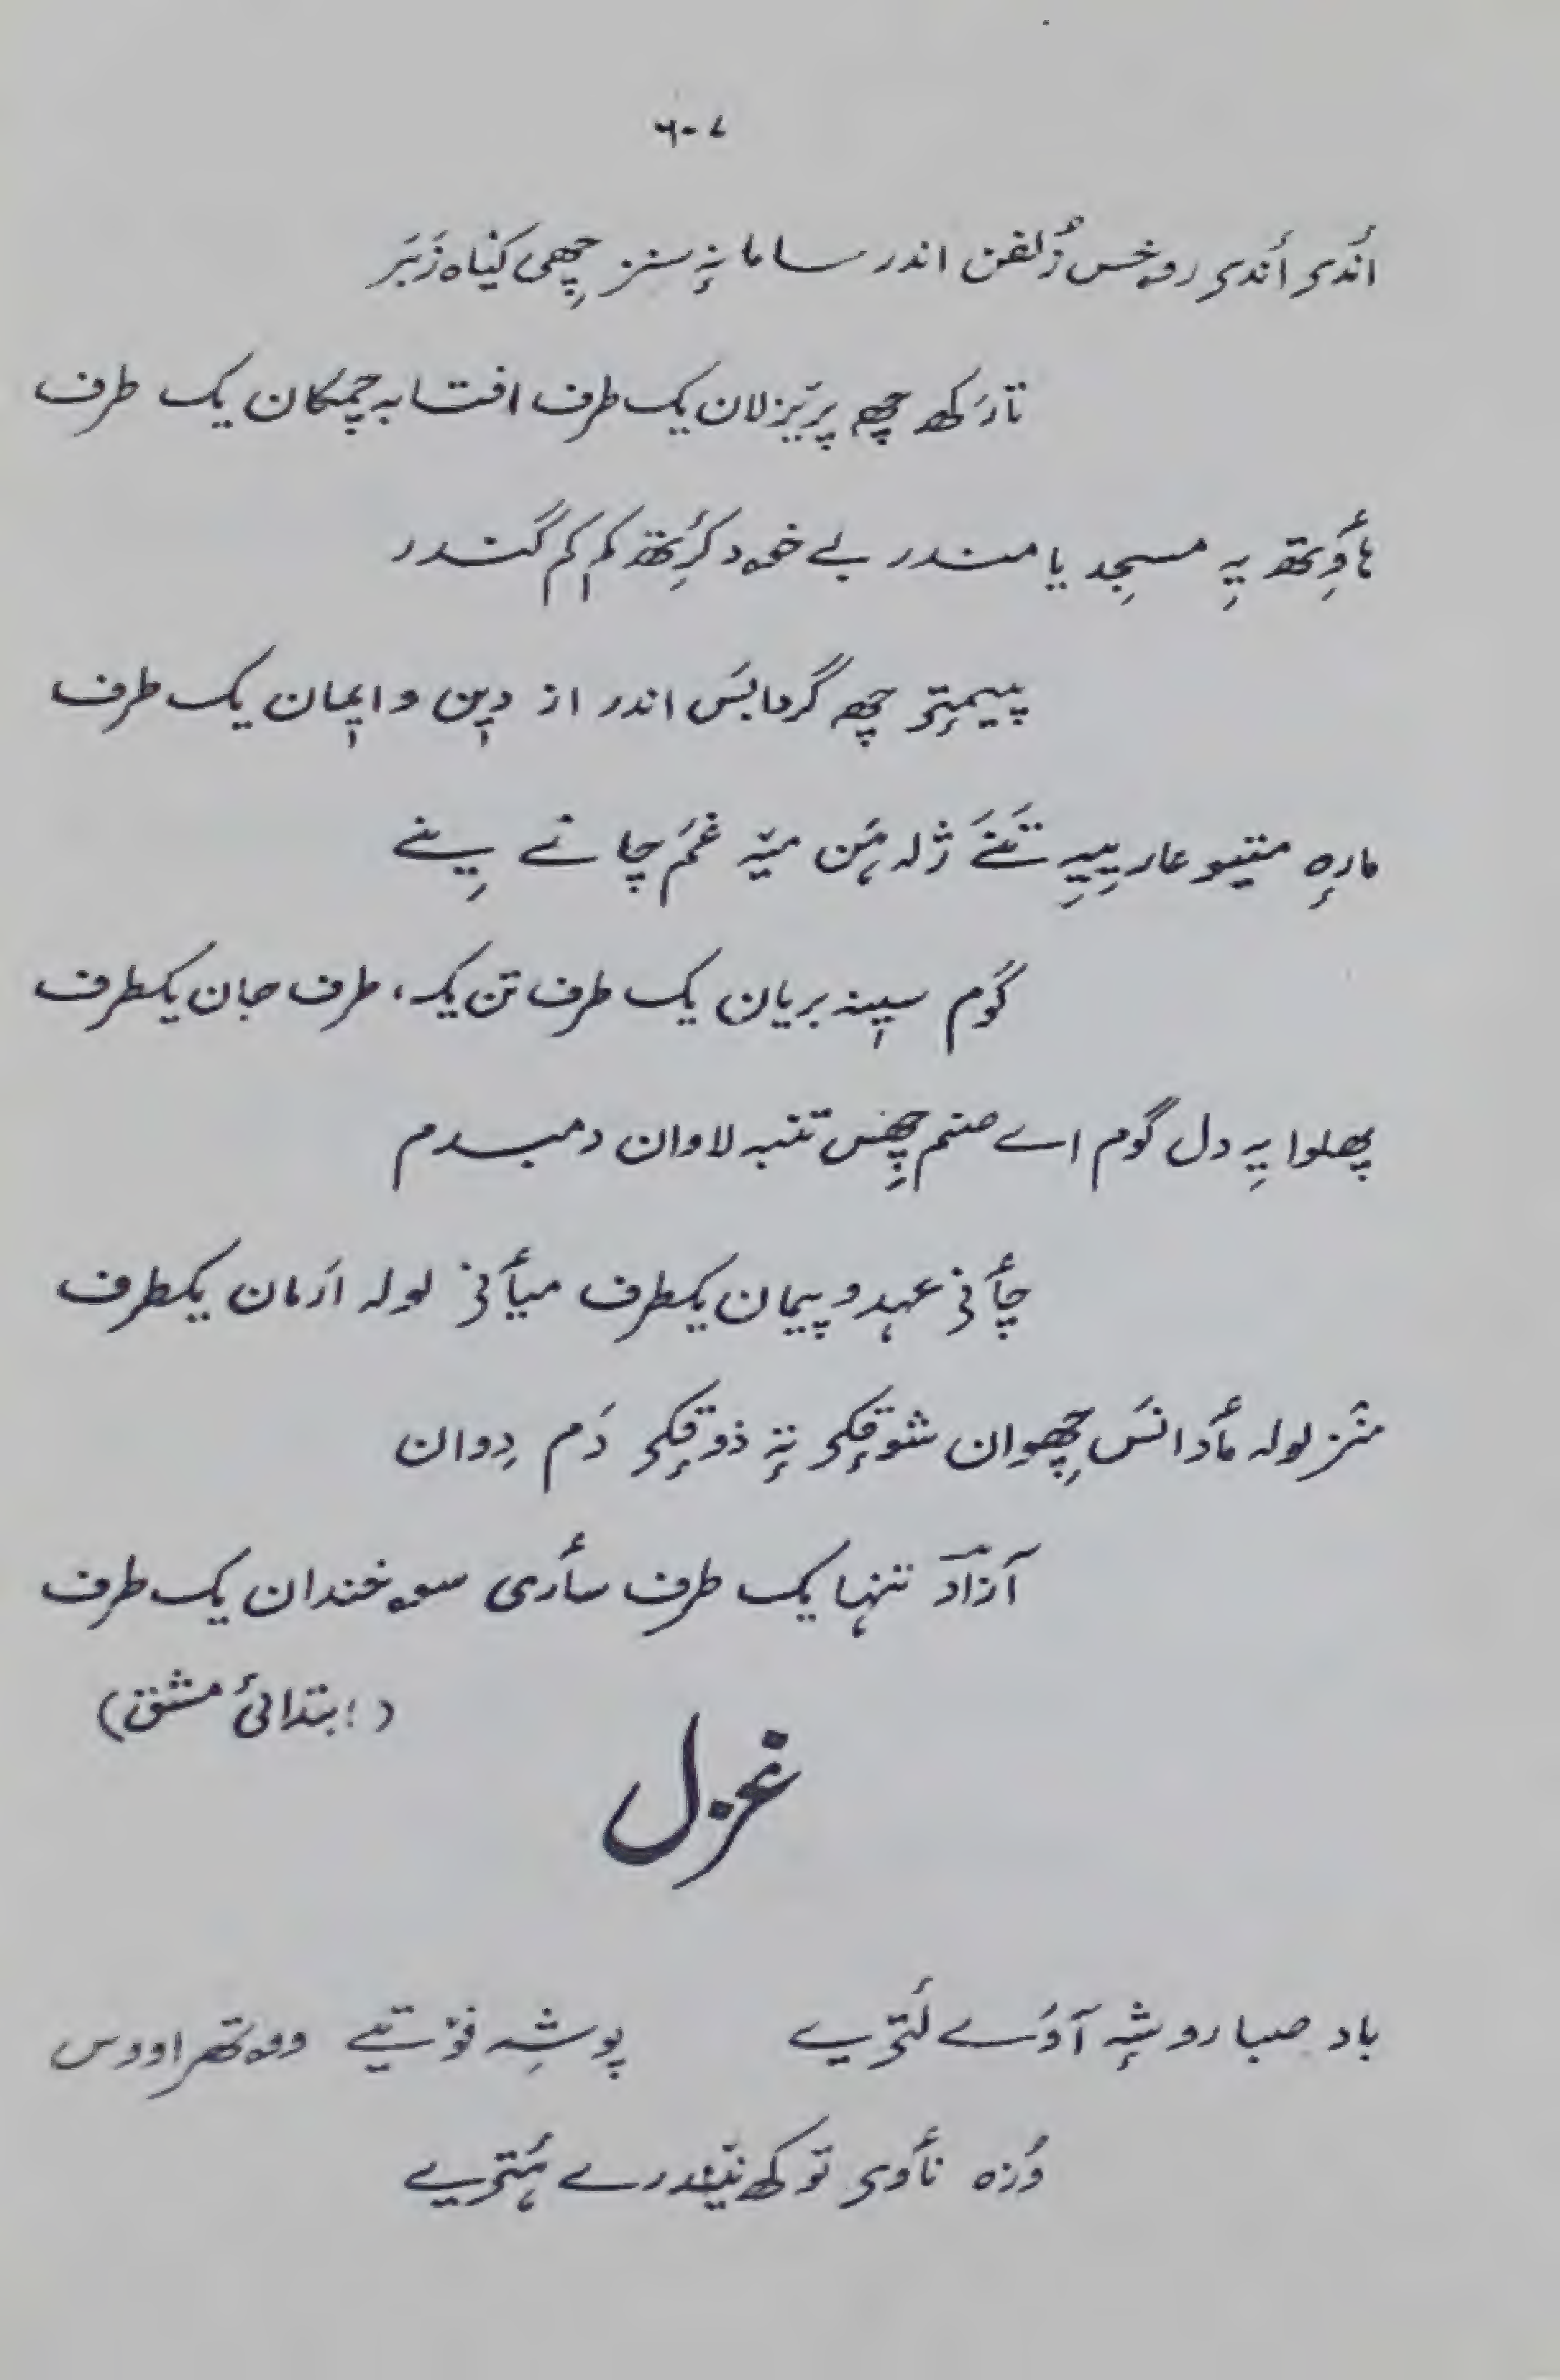 ۶۰۷
اَندۍ اَندۍ روخس زُلفن اندر سامانہٕ سنز چھےٚ کیٚاہ زَبَر
تارَکھ چھِ پرٛیزلان یک طرف افتابہ چمکان یک طرف
ہٲوِتھ یہِ مسجد یا مندر بے خۄد کٔرِتھ کٔم کٔم گَندر
پیمٕتۍ چھِ گردابَس اندر از دیٖن و ایٖمان یک طرف
مارٕہ متیو عار یِیہِ تَنَے ژٔلہ ہَن میٚہ غَم چانے یِنے
گوم سیٖنہ بریان یک طرف تن یک طرف جان یکطرف
پھلوا یہِ دل گوم اے صنم چھِس تنبہ لاوان دمبدم
چٲنۍ عہد و پیمان یکطرف میٲنۍ لولہ ارَمان یکطرف
منٛز لولہ مٲدانَس چھِوان شوقٕکۍ تہٕ ذوقٕکۍ دَم دِوان
آزادؔ تنہا یک طرف سٲری سۄخندان یک طرف
(ابتدائی مشق)
غزل
باد صبا روشہِ آوَے لَتریے
پوشہِ فۄتیے ووتھراووس
وُزہ نٲوۍ توکھ نیٚندرے ہَتریے